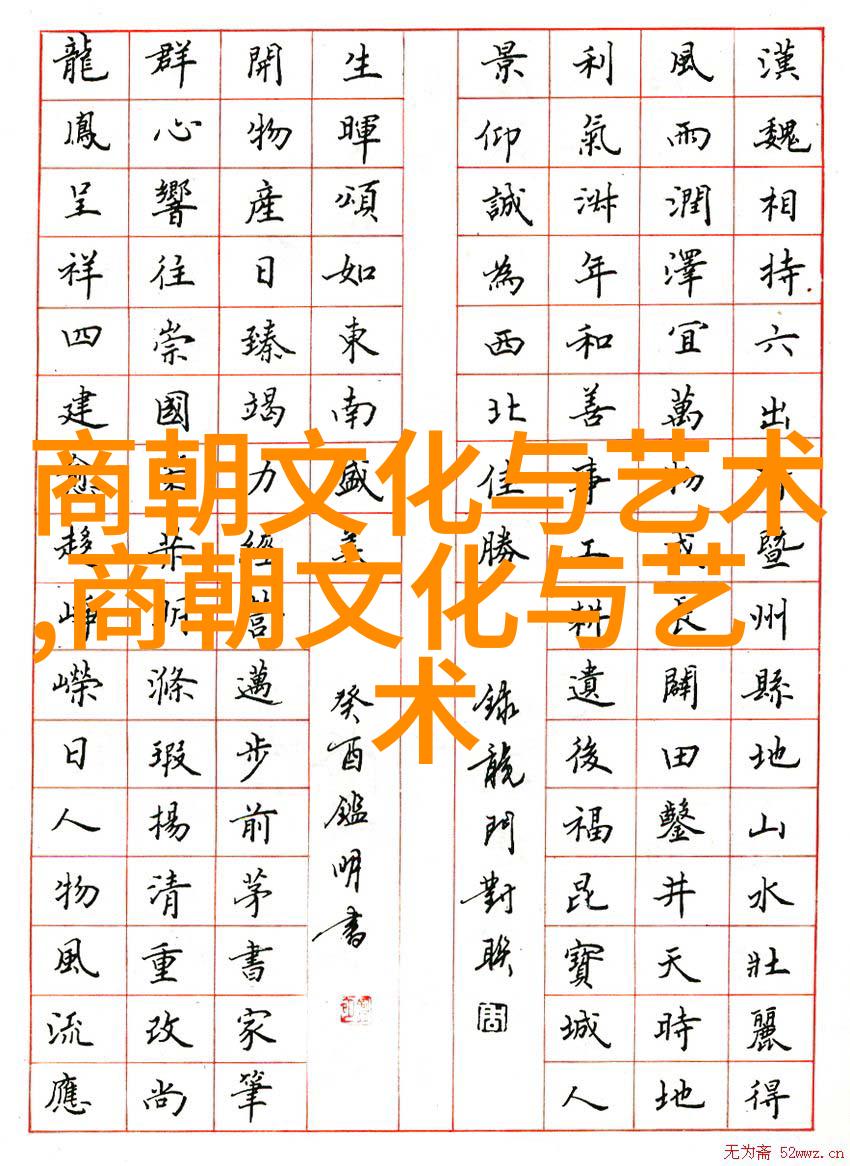 商朝文化与艺术
,商朝文化与艺
术
漢魏相持六出暨州縣地山水壯麗得
風雨潤澤宜萬物成長闢田鑿井天時地
利氣年和善事工耕遺後福昆寶城人
景仰誠為西北佳勝
錄龍門對聯
生暉頌如東南盛
癸酉鑑明書
開物產日臻竭力經營邁步前茅書家筆
群心響往崇國明滌瑕揚清重改尚
龍鳳呈祥四建愈趨崢嶸日人物風流應
无为斋 52wwz.cn